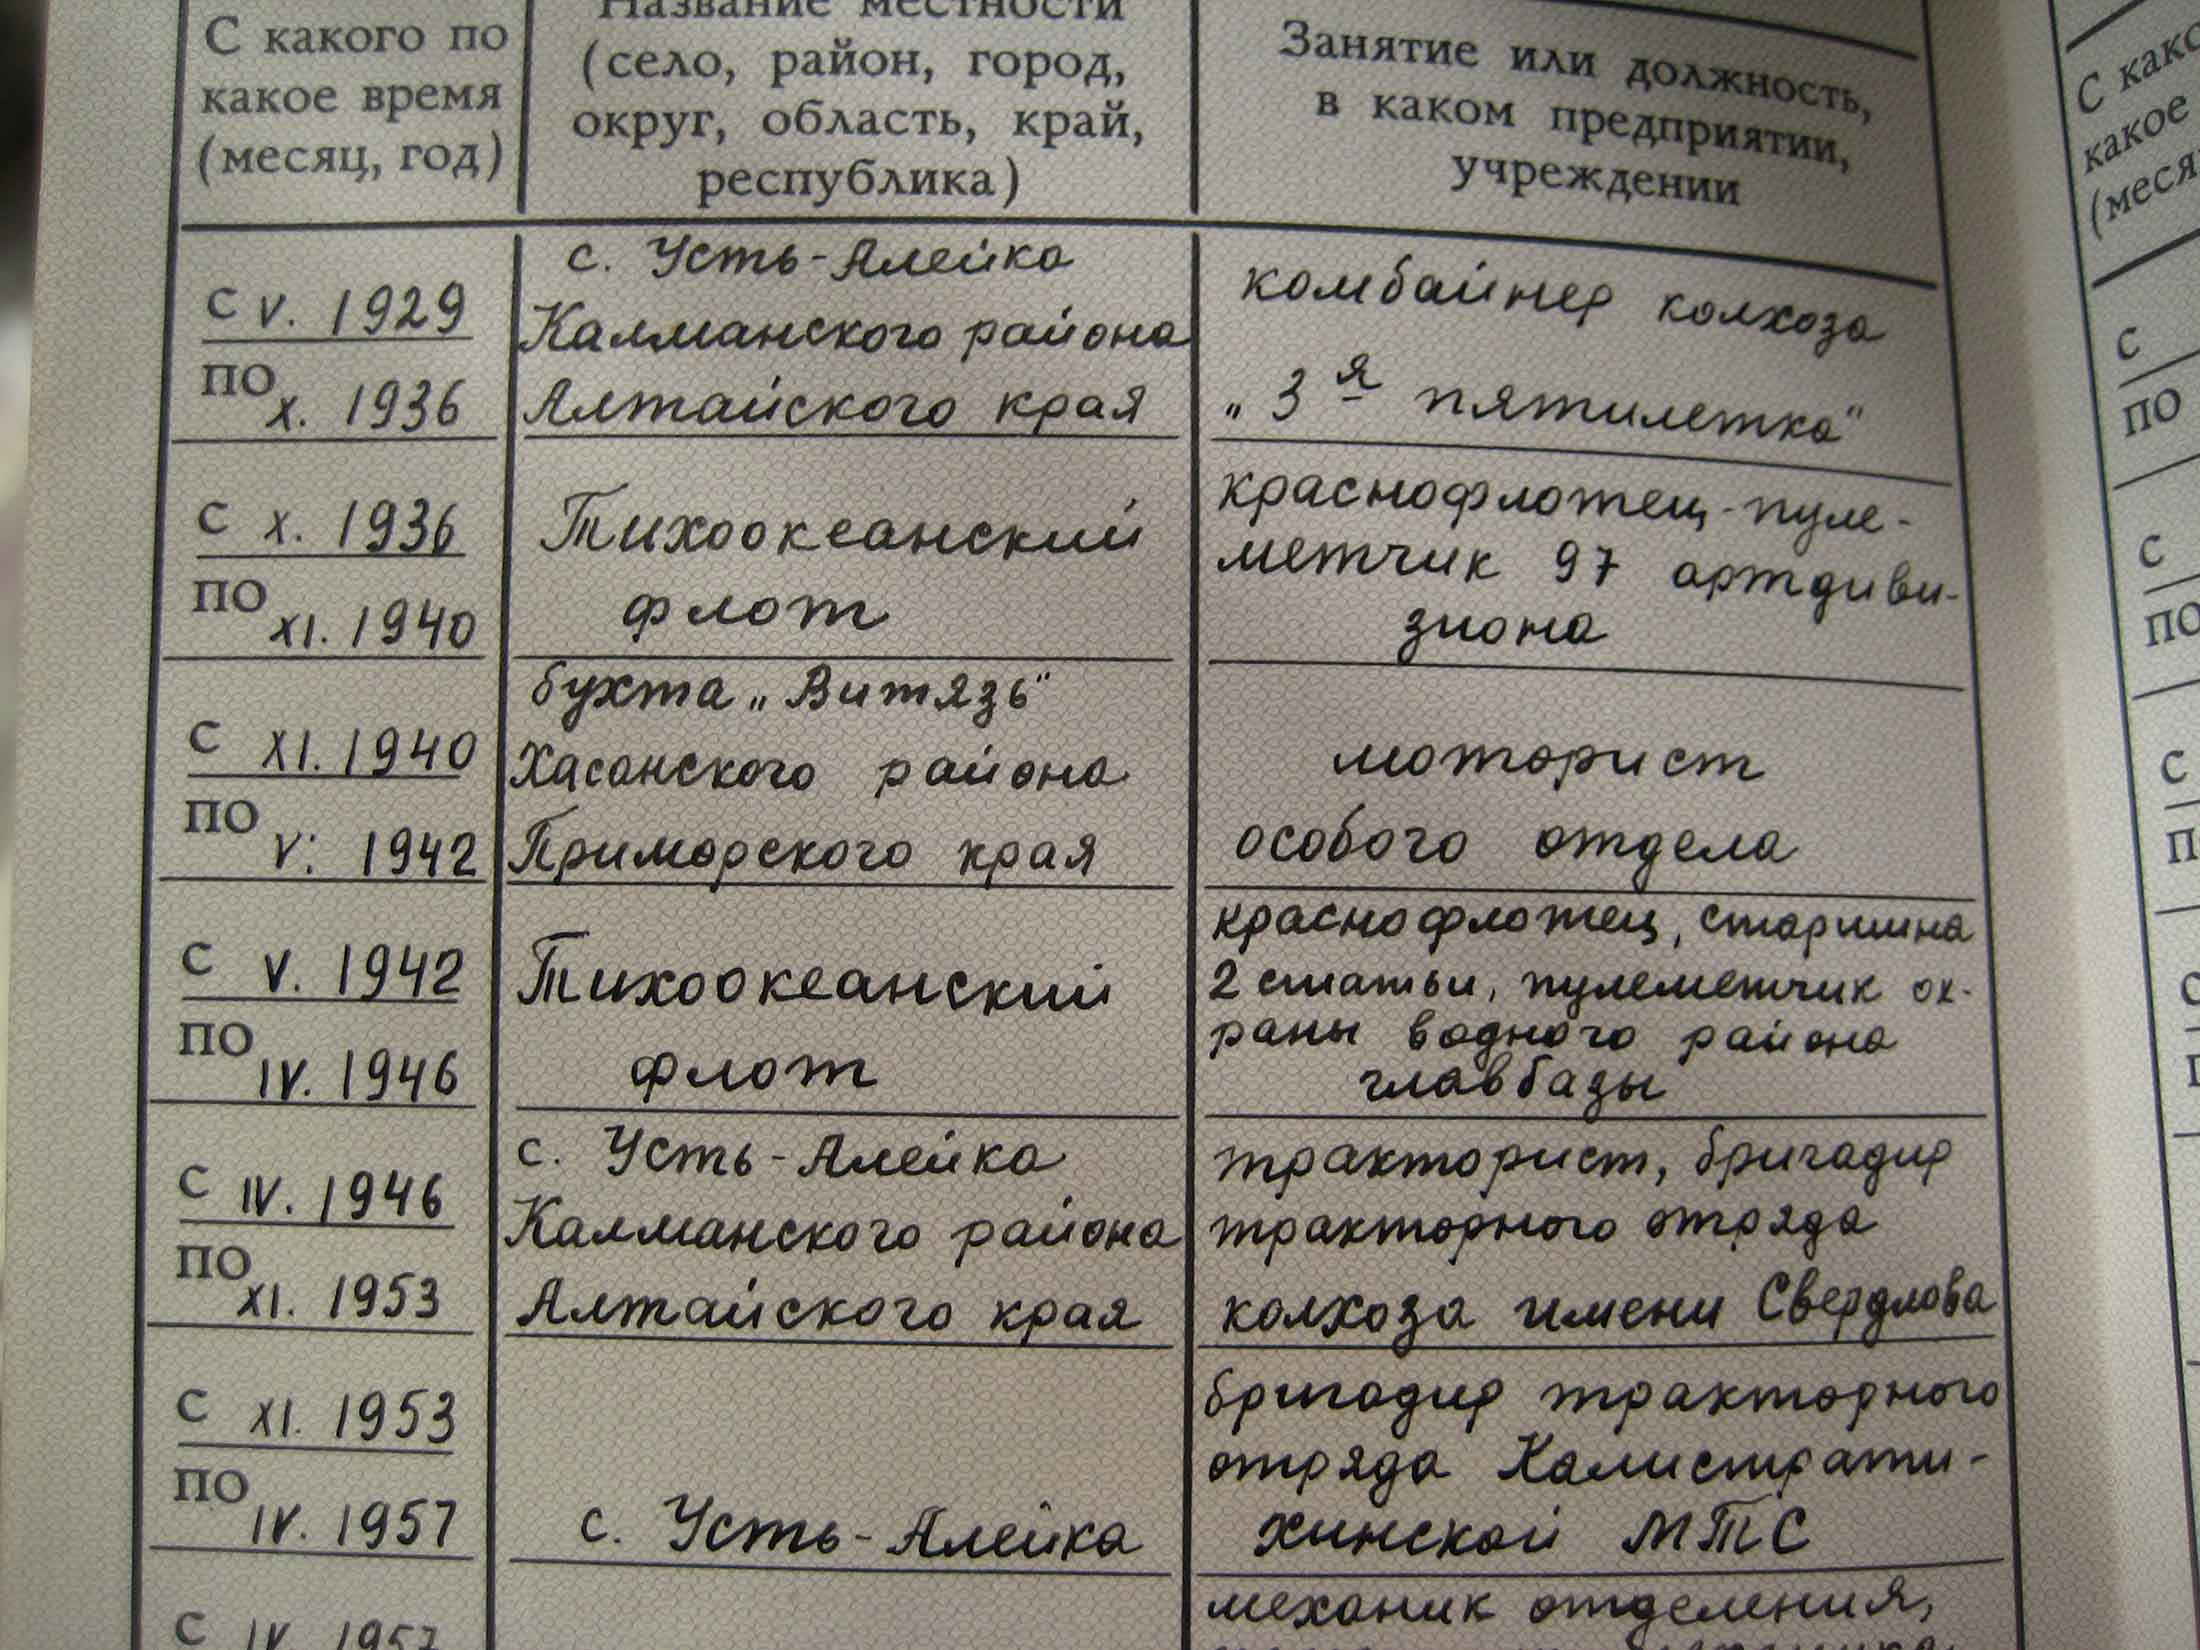 С какого по
какое время
(месяц, год)
Название местности
(село, район, город,
округ, область, край,
республика)
Занятие или должность,
в каком предприятии,
учреждении
С V. 1929
ПО X. 1936
с. Усть-Алейка
Калманского района
Алтайского края
комбайнер колхоза
„3я пятилетка"
С X. 1936
ПО XI. 1940
Тихоокеанский
флот
краснофлотец-пуле-
метчик 97 артдиви-
зиона
С XI. 1940
ПО V. 1942
бухта „Витязь"
Хасанского района
Приморского края
моторист
особого отдела
С V. 1942
ПО IV. 1946
Тихоокеанский
флот
краснофлотец, старшина
2 статьи, пулеметчик ох-
раны водного района
главбазы
С IV. 1946
ПО XI. 1953
с. Усть-Алейка
Калманского района
Алтайского края
тракторист, бригадир
тракторного отряда
колхоза имени Свердлова
С XI. 1953
ПО IV. 1957
с. Усть-Алейка
бригадир тракторного
отряда Калистрати-
хинской МТС
С IV. 1957
механик отделения,
С како
какое
(меся
С
ПО
С
ПО
С
П
С